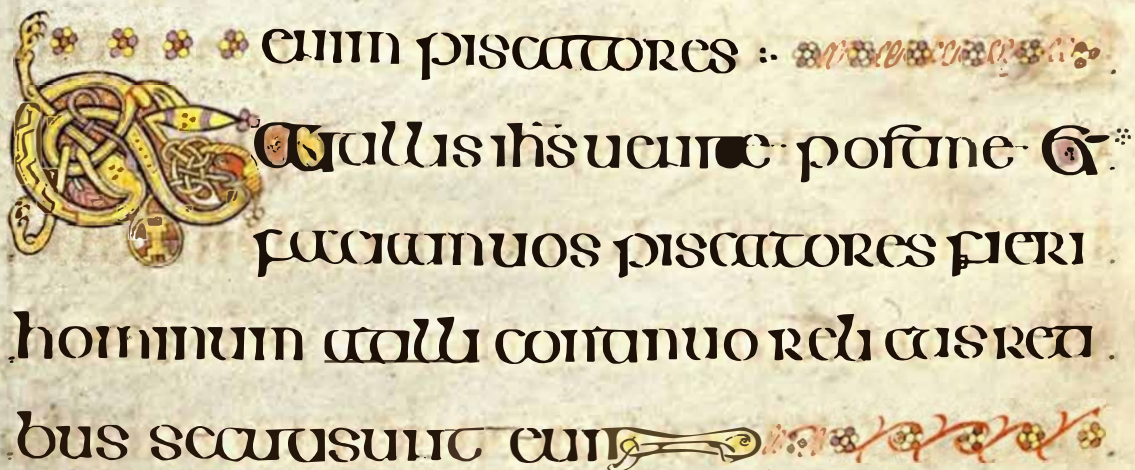 enim piscatores :·
Et ait illis ihs uenite post me et
faciam uos piscatores fieri
hominum at illi continuo relictis reti
bus secuti sunt eum